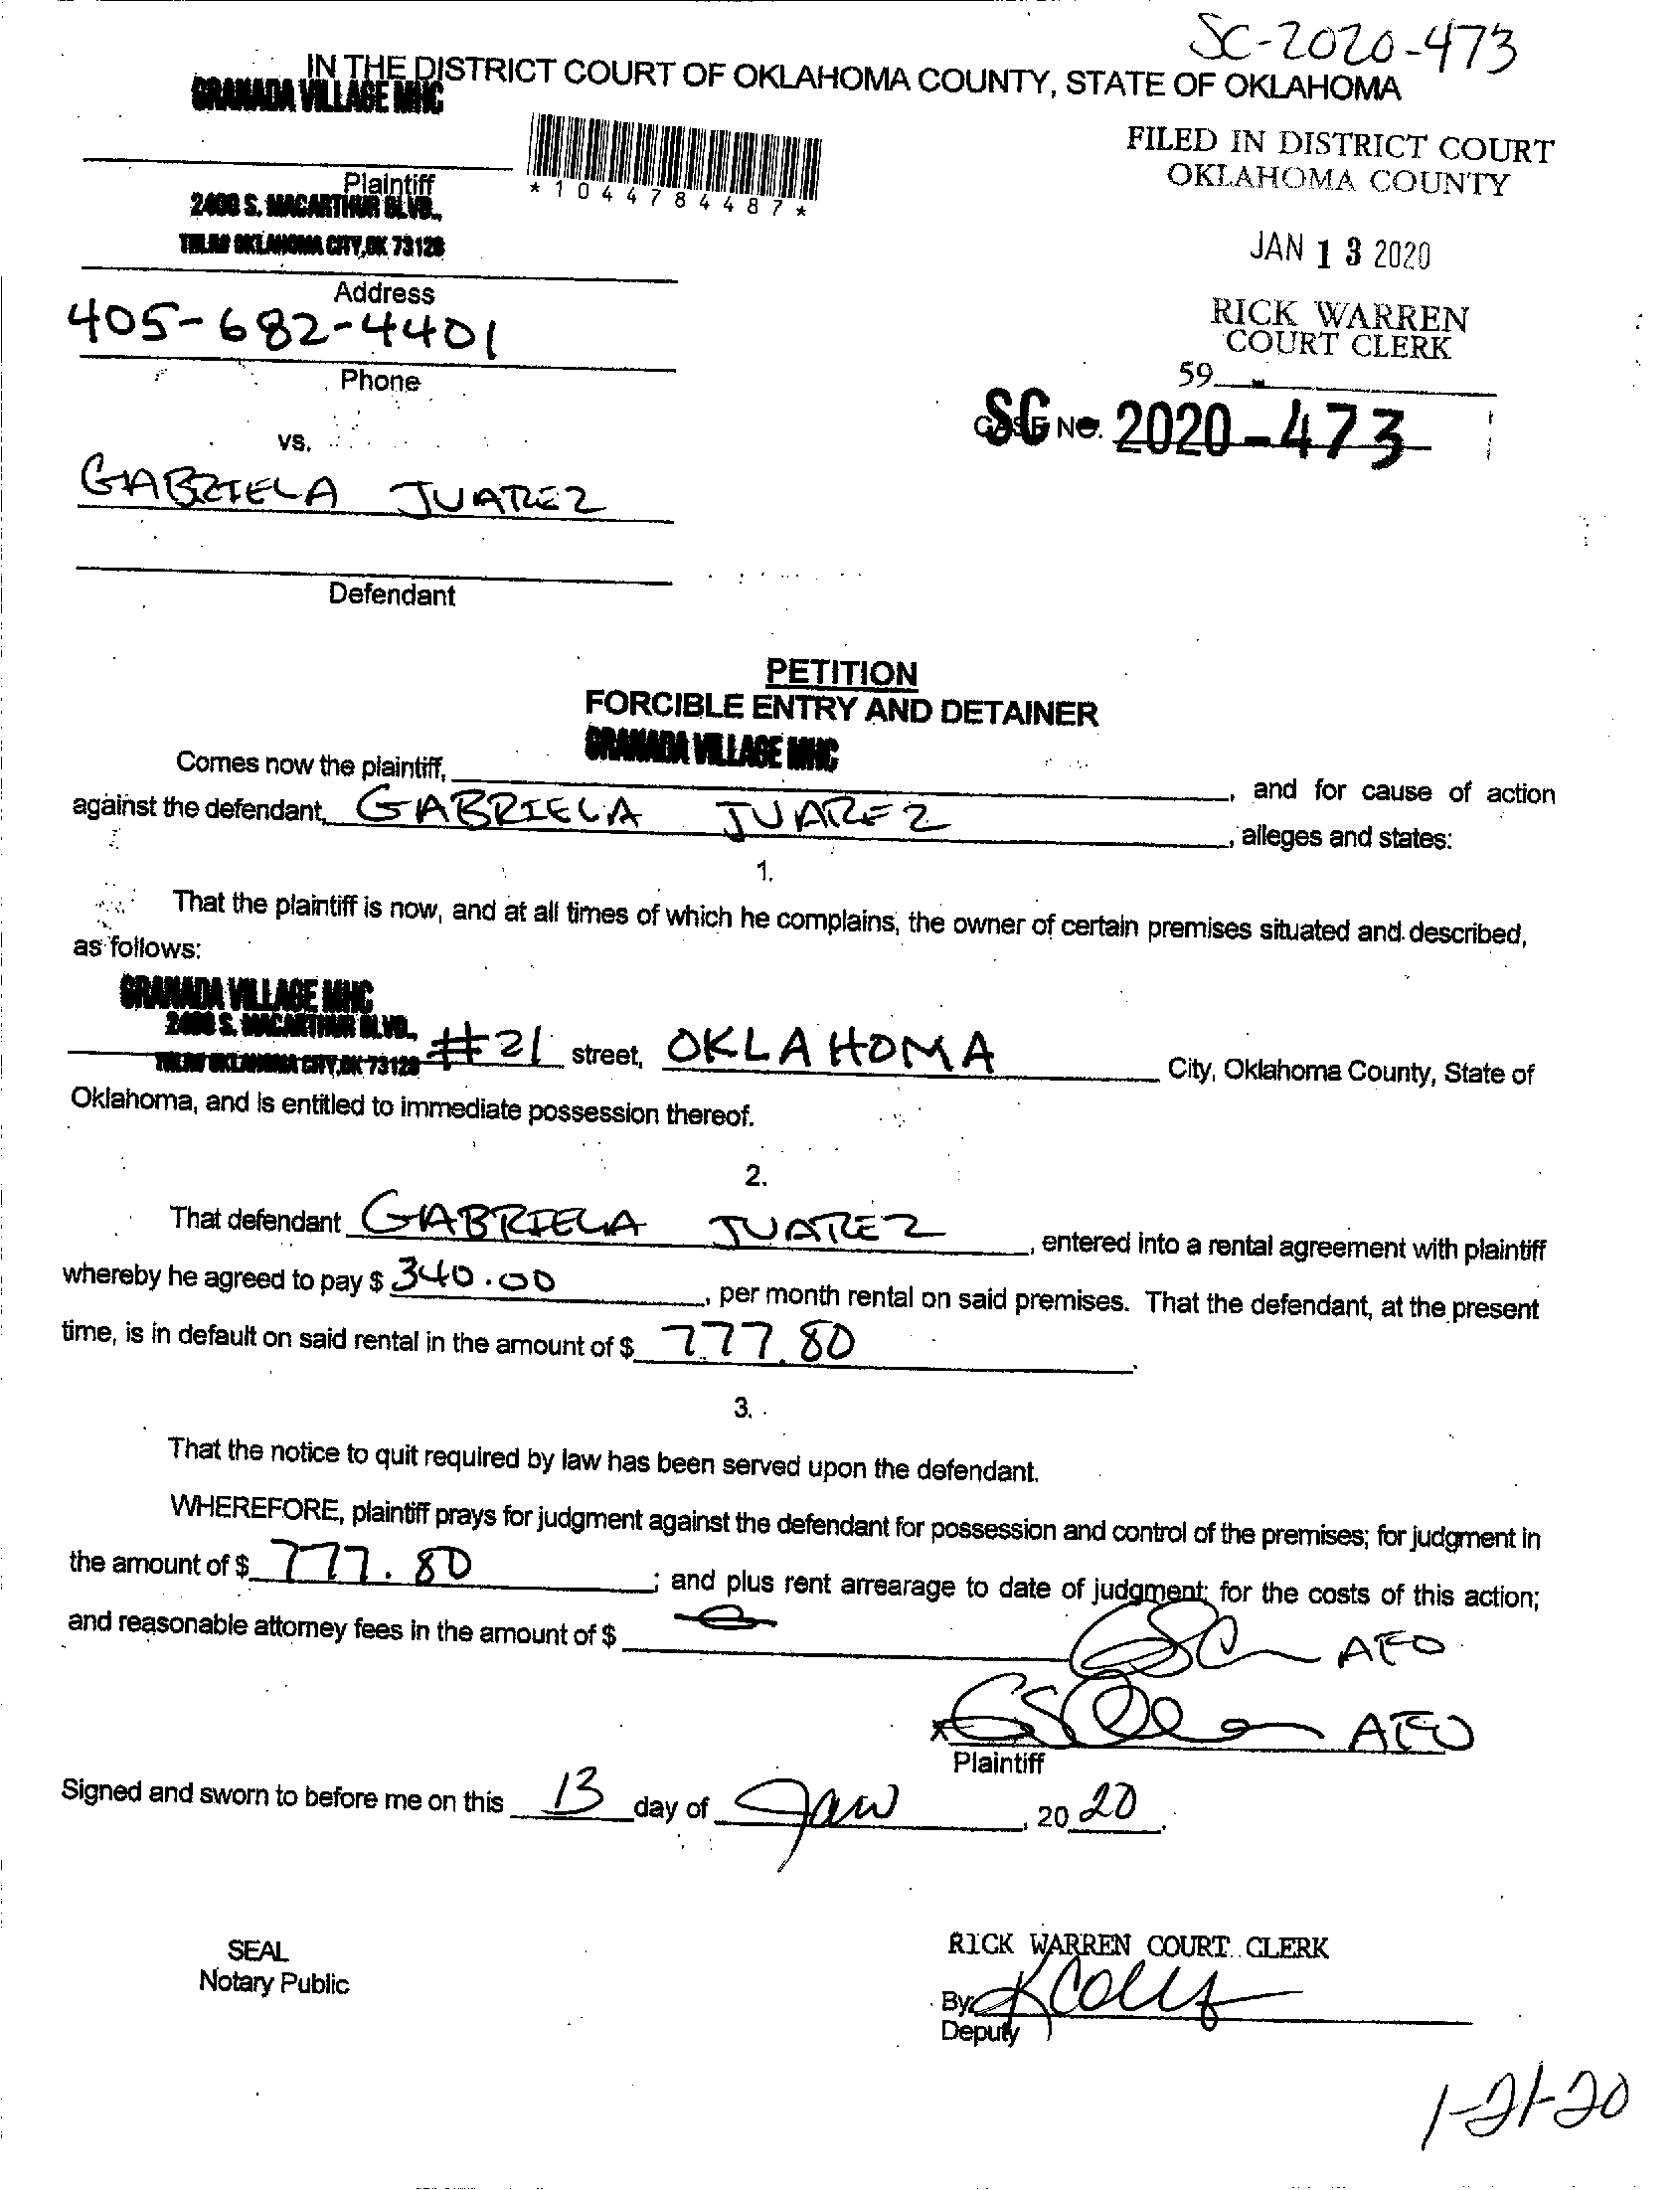 SC-2020-473
IN THE DISTRICT COURT OF OKLAHOMA COUNTY, STATE OF OKLAHOMA
GRANADA VILLAGE MHC
FILED IN DISTRICT COURT
OKLAHOMA COUNTY
*1044784487*
Plaintiff
2400 S. MACARTHUR BLVD.,
OKLAHOMA CITY, OK 73128
JAN 13 2020
Address
405-682-4401
RICK WARREN
COURT CLERK
Phone
59
SC CASE NO. 2020-473
vs.
GABRIELA JUAREZ
Defendant
PETITION
FORCIBLE ENTRY AND DETAINER
GRANADA VILLAGE MHC
Comes now the plaintiff, , and for cause of action
against the defendant, GABRIELA JUAREZ, alleges and states:
1.
That the plaintiff is now, and at all times of which he complains, the owner of certain premises situated and described,
as follows:
GRANADA VILLAGE MHC
2400 S. MACARTHUR BLVD.,
OKLAHOMA CITY, OK 73128 #21 street, OKLAHOMA City, Oklahoma County, State of
Oklahoma, and is entitled to immediate possession thereof.
2.
That defendant GABRIELA JUAREZ, entered into a rental agreement with plaintiff
whereby he agreed to pay $ 340.00, per month rental on said premises. That the defendant, at the present
time, is in default on said rental in the amount of $ 777.80.
3.
That the notice to quit required by law has been served upon the defendant.
WHEREFORE, plaintiff prays for judgment against the defendant for possession and control of the premises; for judgment in
the amount of $ 777.80; and plus rent arrearage to date of judgment; for the costs of this action;
and reasonable attorney fees in the amount of $
AFO
x AFO
Plaintiff
Signed and sworn to before me on this 13 day of Jan, 20 20.
SEAL
Notary Public
RICK WARREN COURT CLERK
By
Deputy
1-21-20